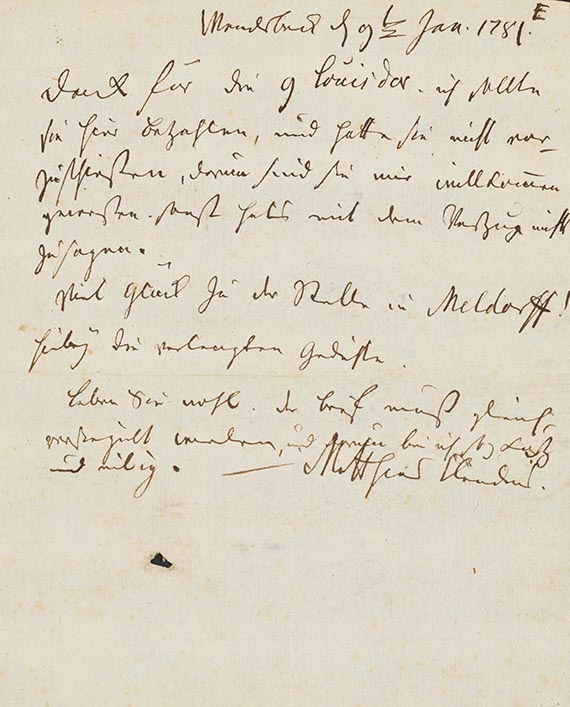 Wandsbeck d 9 Jan. 1781. E
Dank für die 9 Louisdor. ich sollte
sie hier bezahlen, und hatte sie nicht vor-
zuschießen, darum sind sie mir willkommen
gewesen. sonst hats mit dem Verzug nichts
zu sagen.
Viel Glück zu der Stelle in Meldorff!
hiebey die verlangten Gedichte.
Leben Sie wohl. der brief muß gleich
versiegelt werden, und darum bin ich so kurz
und eilig. — Matthias Claudius.